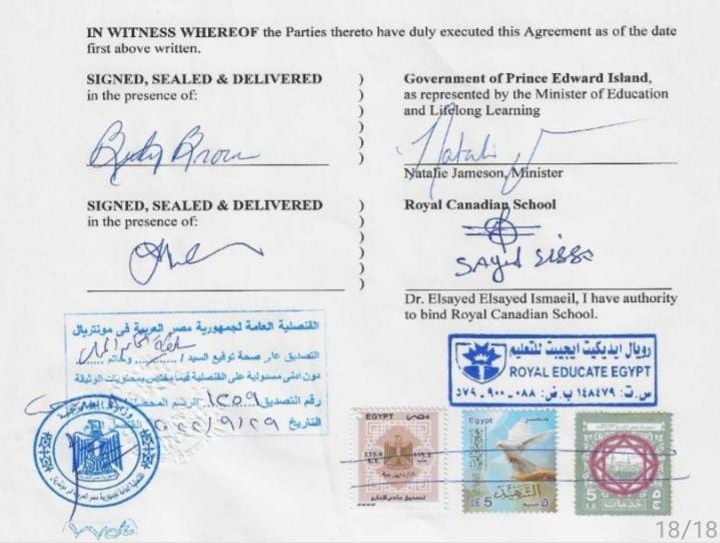 IN WITNESS WHEREOF the Parties thereto have duly executed this Agreement as of the date
first above written.
SIGNED, SEALED & DELIVERED )
in the presence of: )
)
)
)
Government of Prince Edward Island,
as represented by the Minister of Education
and Lifelong Learning
Natalie Jameson, Minister
SIGNED, SEALED & DELIVERED )
in the presence of: )
)
)
)
Royal Canadian School
Sayed Eissa
Dr. Elsayed Elsayed Ismaeil, I have authority
to bind Royal Canadian School.
القنصلية العامة لجمهورية مصر العربية فى مونتريال
التصديق على صحة توقيع السيد /
دون أدنى مسئولية على القنصلية فيما يختص بمحتويات الوثيقة
رقم التصديق ١٢٥٩
التاريخ
رويال ايديكيت ايجيبت للتعليم
ROYAL EDUCATE EGYPT
س.ت: ١٤٨٤٧٩ ب.ض: ٠٨٨-٩٠٠-٥٧٩
EGYPT مصر
Egypt مصر
LE 5
5
خدمات
18/18